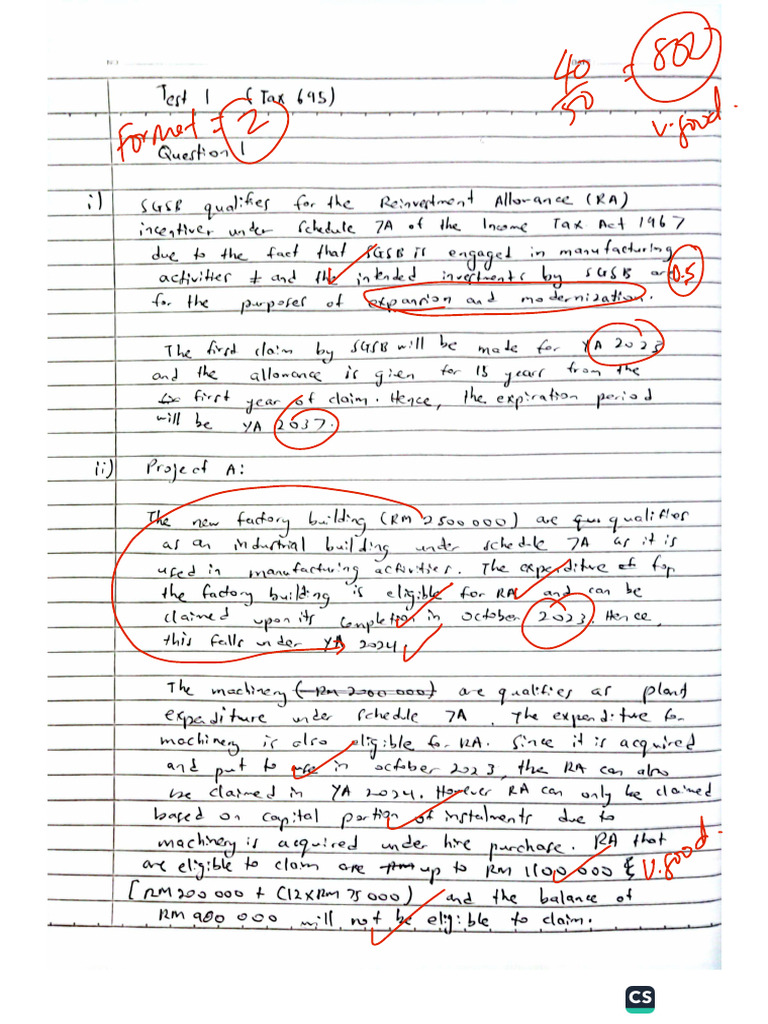 Test 1 (Tax 695)
40/50 = 80%
V.good.
Format = 2
Question 1
i) SGSB qualifies for the Reinvestment Allowance (RA)
incentives under schedule 7A of the Income Tax Act 1967
due to the fact that SGSB is engaged in manufacturing
activities and the intended investments by SGSB are
0.5
for the purposes of expansion and modernization.
The first claim by SGSB will be made for YA 2023
and the allowance is given for 15 years from the
first year of claim. Hence, the expiration period
will be YA 2037.
ii) Project A:
The new factory building (RM 2500000) are qualifies
as an industrial building under schedule 7A as it is
used in manufacturing activities. The expenditure for
the factory building is eligible for RA and can be
claimed upon its completion in october 2023. Hence,
this falls under YA 2024
The machinery (RM 2000 000) are qualifies as plant
expenditure under schedule 7A. The expenditure for
machinery is also eligible for RA. Since it is acquired
and put to use in october 2023, the RA can also
be claimed in YA 2024. However RA can only be claimed
based on capital portion of instalments due to
machinery is acquired under hire purchase. RA that
are eligible to claim are up to RM 1100 000
V.good.
[RM 200 000 + (12 x RM 75 000) and the balance of
RM 900 000 will not be eligible to claim.
CS